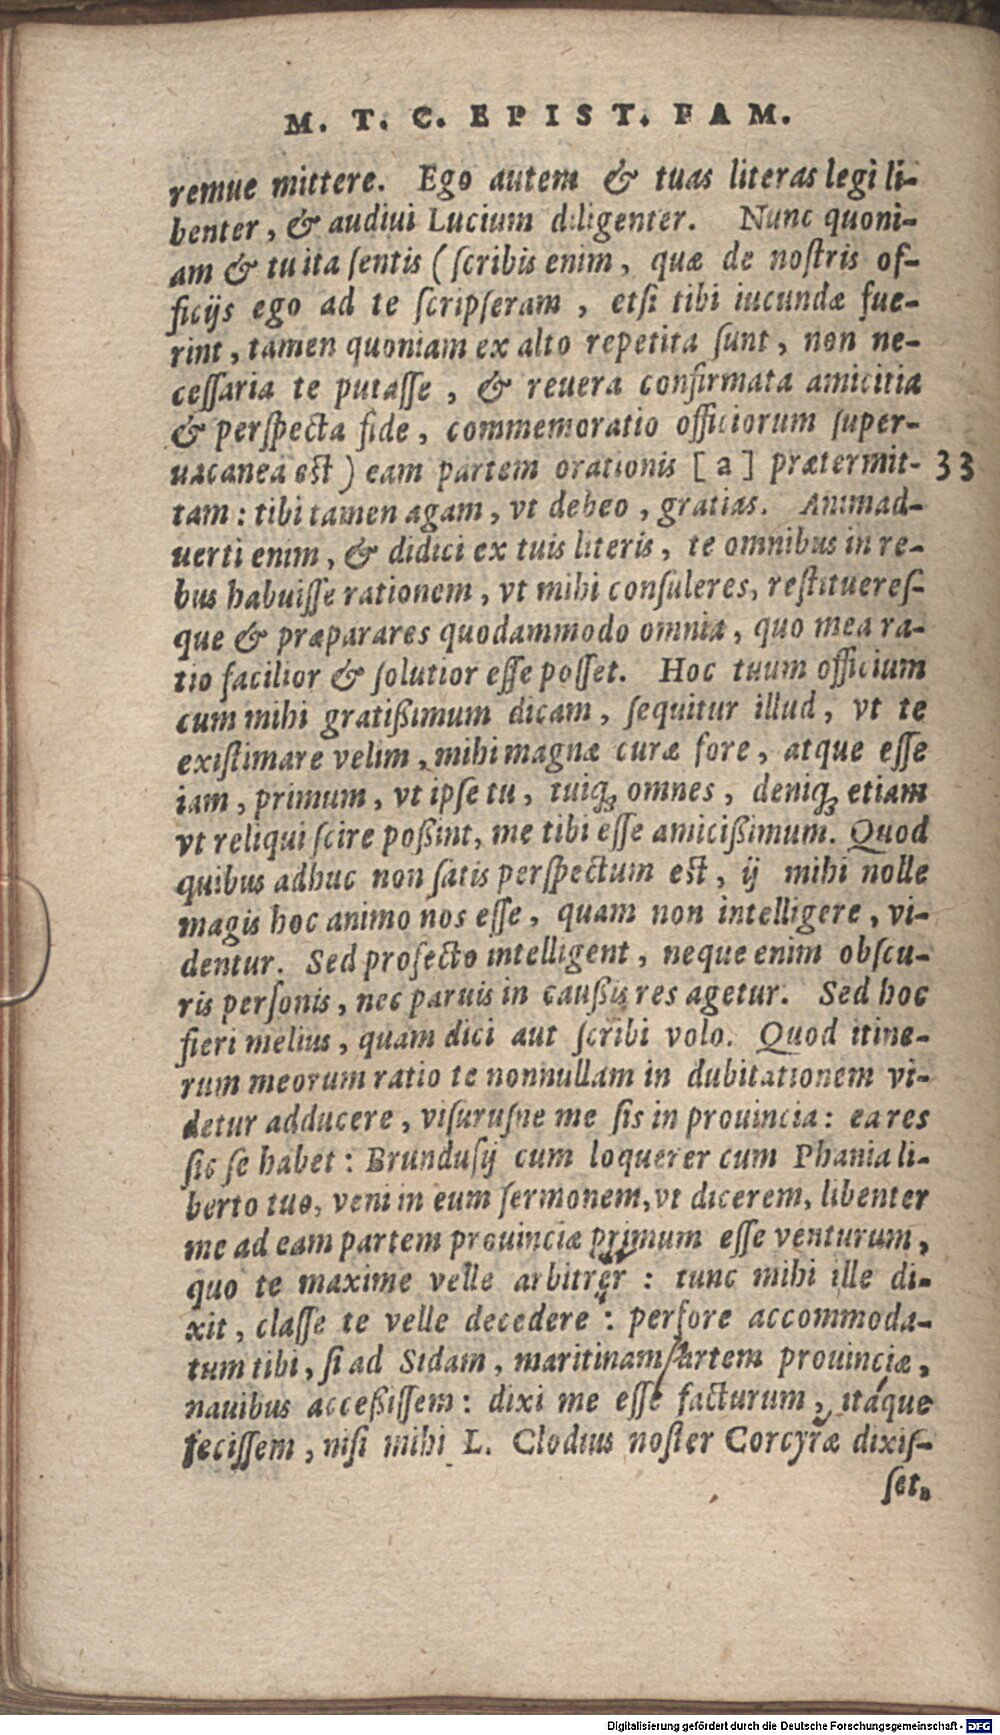 M. T. C. EPIST. FAM.
remue mittere. Ego autem & tuas literas legi li-
benter, & audiui Lucium diligenter. Nunc quoni-
am & tu ita ſentis (ſcribis enim, quæ de noſtris of-
ficijs ego ad te ſcripſeram, etſi tibi iucundæ fue-
rint, tamen quoniam ex alto repetita ſunt, non ne-
ceſſaria te putaſſe, & reuera confirmata amicitia
& perſpecta fide, commemoratio officiorum ſuper-
uacanea est) eam partem orationis [a] prætermit- 33
tam: tibi tamen agam, vt debeo, gratias. Animad-
uerti enim, & didici ex tuis literis, te omnibus in re-
bus habuiſſe rationem, vt mihi conſuleres, reſtituereſ-
que & præparares quodammodo omnia, quo mea ra-
tio facilior & ſolutior eſſe poſſet. Hoc tuum officium
cum mihi gratißimum dicam, ſequitur illud, vt te
exiſtimare velim, mihi magnæ curæ fore, atque eſſe
iam, primum, vt ipſe tu, tuiq́ꝫ omnes, deniq́ꝫ etiam
vt reliqui ſcire poßint, me tibi eſſe amicißimum. Quod
quibus adhuc non ſatis perſpectum est, ij mihi nolle
magis hoc animo nos eſſe, quam non intelligere, vi-
dentur. Sed profecto intelligent, neque enim obſcu-
ris perſonis, nec paruis in caußis res agetur. Sed hoc
fieri melius, quam dici aut ſcribi volo. Quod itine-
rum meorum ratio te nonnullam in dubitationem vi-
detur adducere, viſuruſne me ſis in prouincia: ea res
ſic ſe habet: Brunduſij cum loquerer cum Phania li-
berto tuo, veni in eum ſermonem, vt dicerem, libenter
me ad eam partem prouinciæ primum eſſe venturum,
quo te maxime velle arbitrer: tunc mihi ille di-
xit, claſſe te velle decedere: perfore accommoda-
tum tibi, ſi ad Sidam, maritinam partem prouinciæ,
nauibus acceßiſſem: dixi me eſſe facturum, itaque
feciſſem, niſi mihi L. Clodius noſter Corcyræ dixiſ-
ſet,
Digitalisierung gefördert durch die Deutsche Forschungsgemeinschaft - DFG